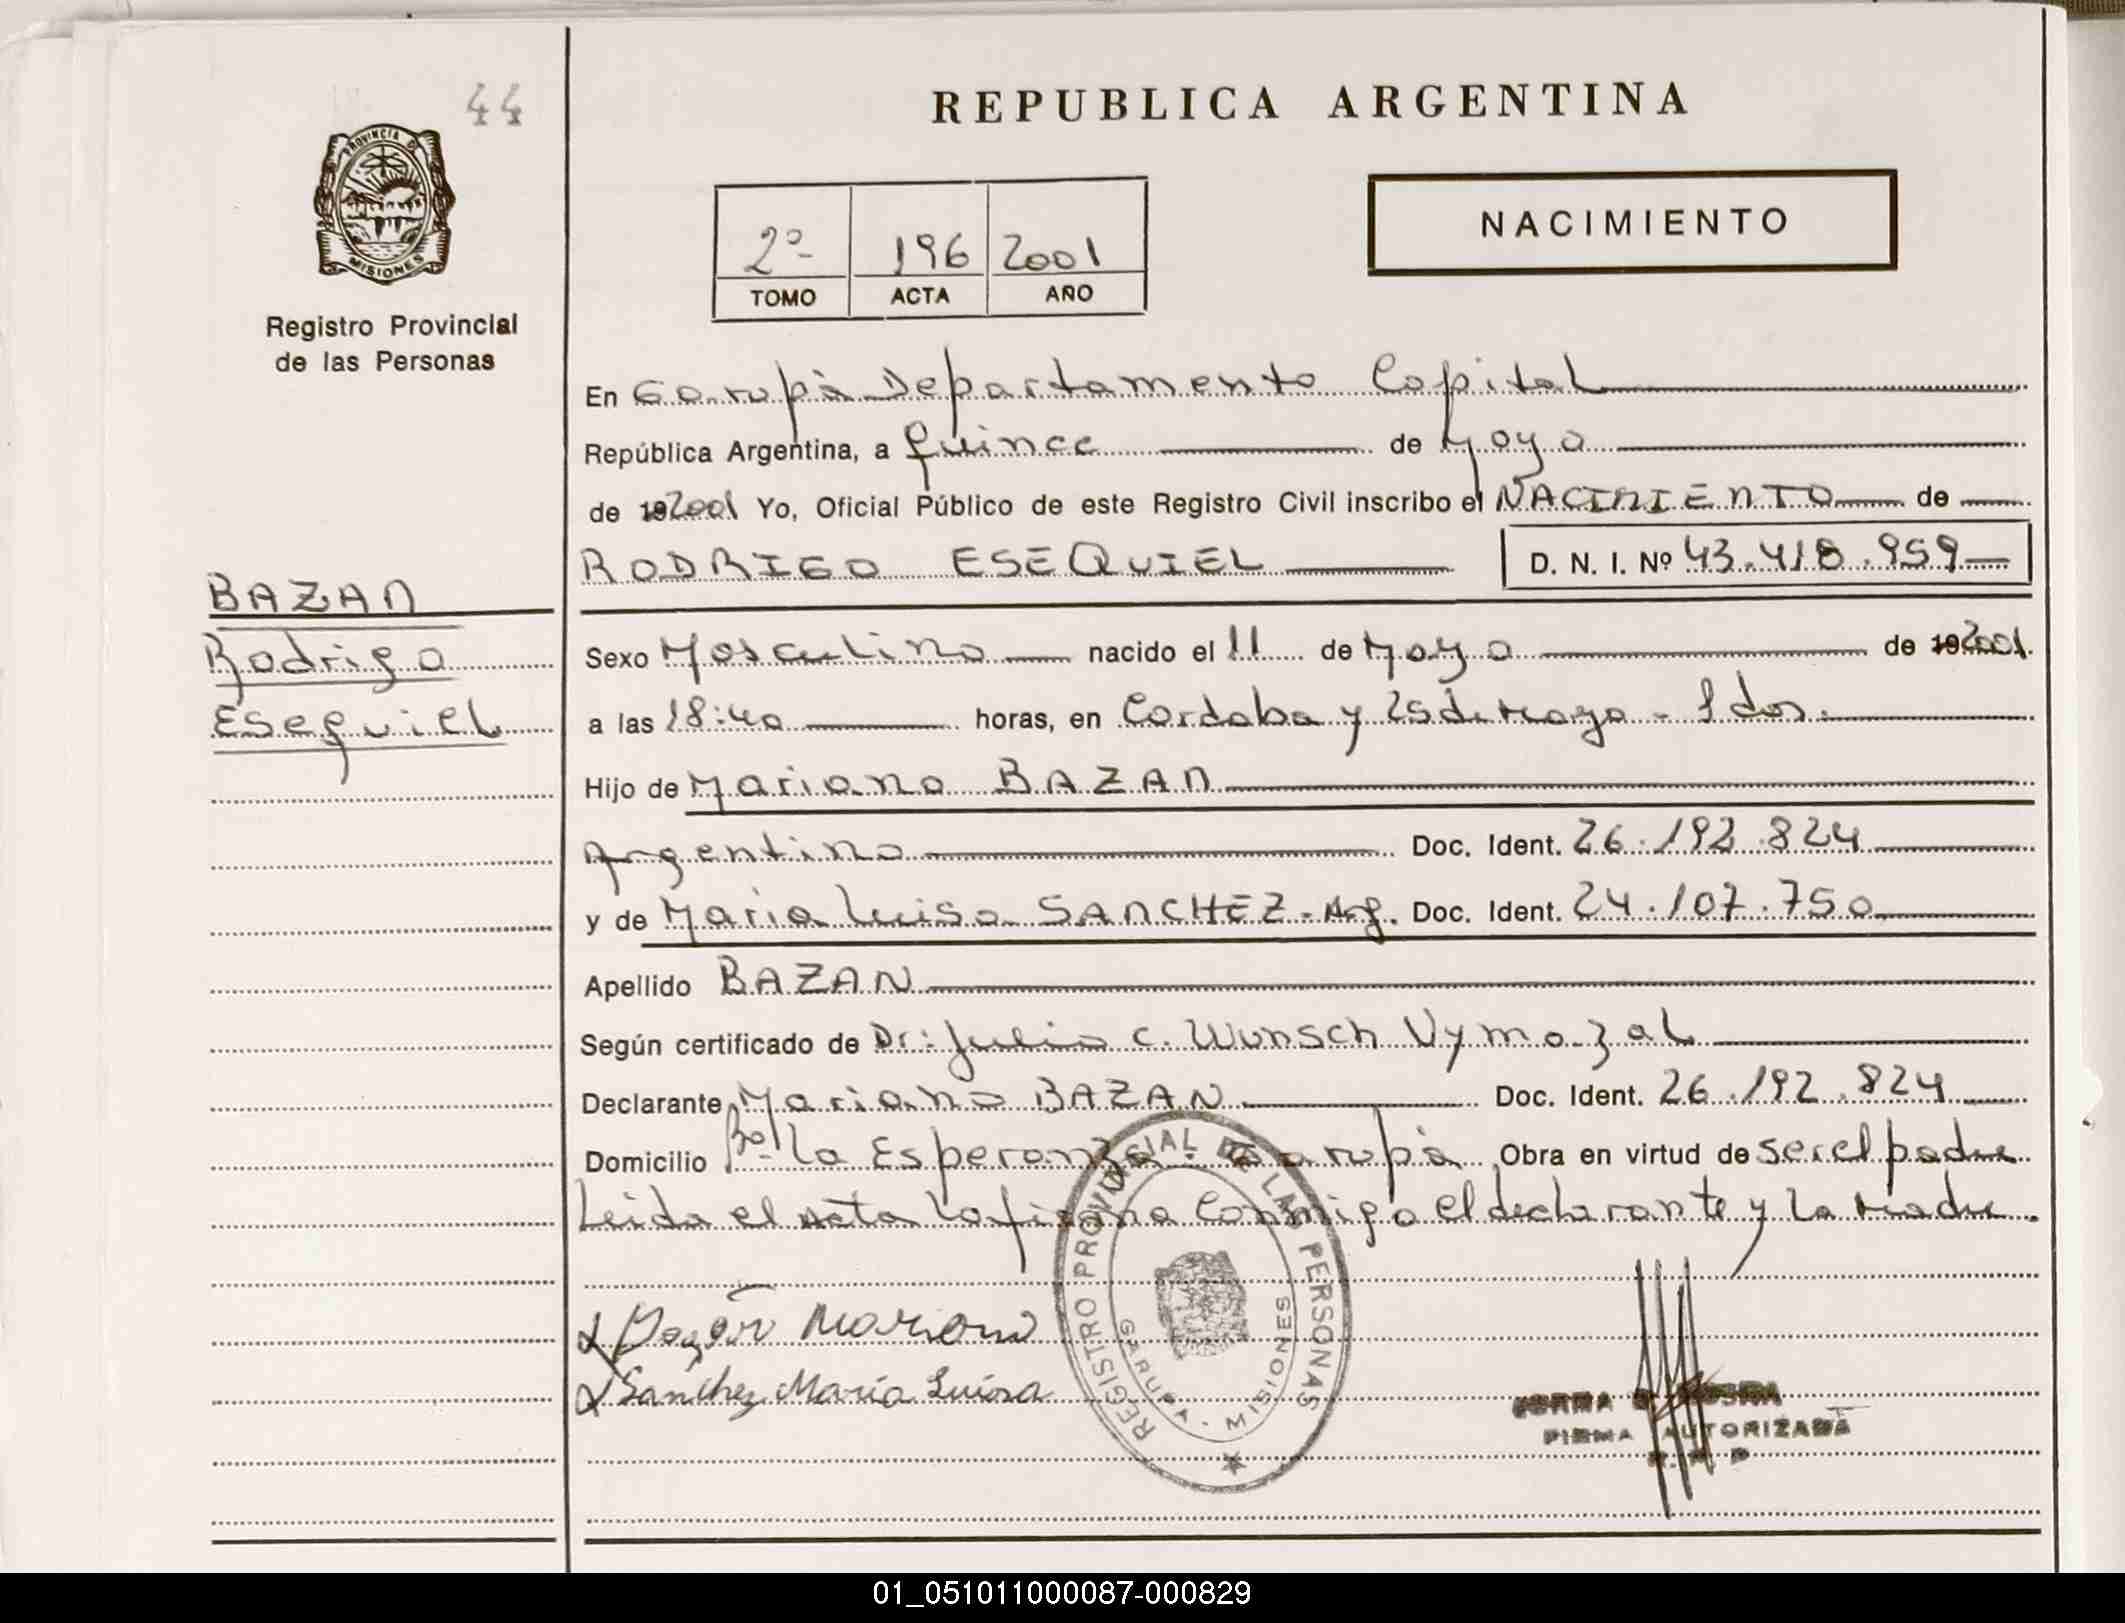 44
REPUBLICA ARGENTINA
PROVINCIA D
MISIONES
Registro Provincial
de las Personas
2º 196 2001
TOMO ACTA AÑO
NACIMIENTO
En Garupà Departamento Capital
República Argentina, a Quince de Mayo
de 192001 Yo, Oficial Público de este Registro Civil inscribo el NACIMIENTO de
RODRIGO ESEQUIEL D. N. I. Nº 43.418.959
BAZAN
Rodrigo
Esequiel
Sexo Masculino nacido el 11 de Mayo de 192001.
a las 18:40 horas, en Cordoba y 25 de Mayo - Pdas.
Hijo de Mariano BAZAN
Argentino Doc. Ident. 26.192.824
y de Maria Luisa SANCHEZ - Arg. Doc. Ident. 24.107.750
Apellido BAZAN
Según certificado de Dr: Julio C. Wunsch Vymazal
Declarante Mariano BAZAN Doc. Ident. 26.192.824
Domicilio Bº La Esperanza - Garupà Obra en virtud de ser el padre
Leida el acta la firma conmigo el declarante y la Madre.
Bazán Mariano
Sanchez Maria Luisa
REGISTRO PROVINCIAL DE LAS PERSONAS
GARUPA - MISIONES
FIRMA AUTORIZADA
01_051011000087-000829